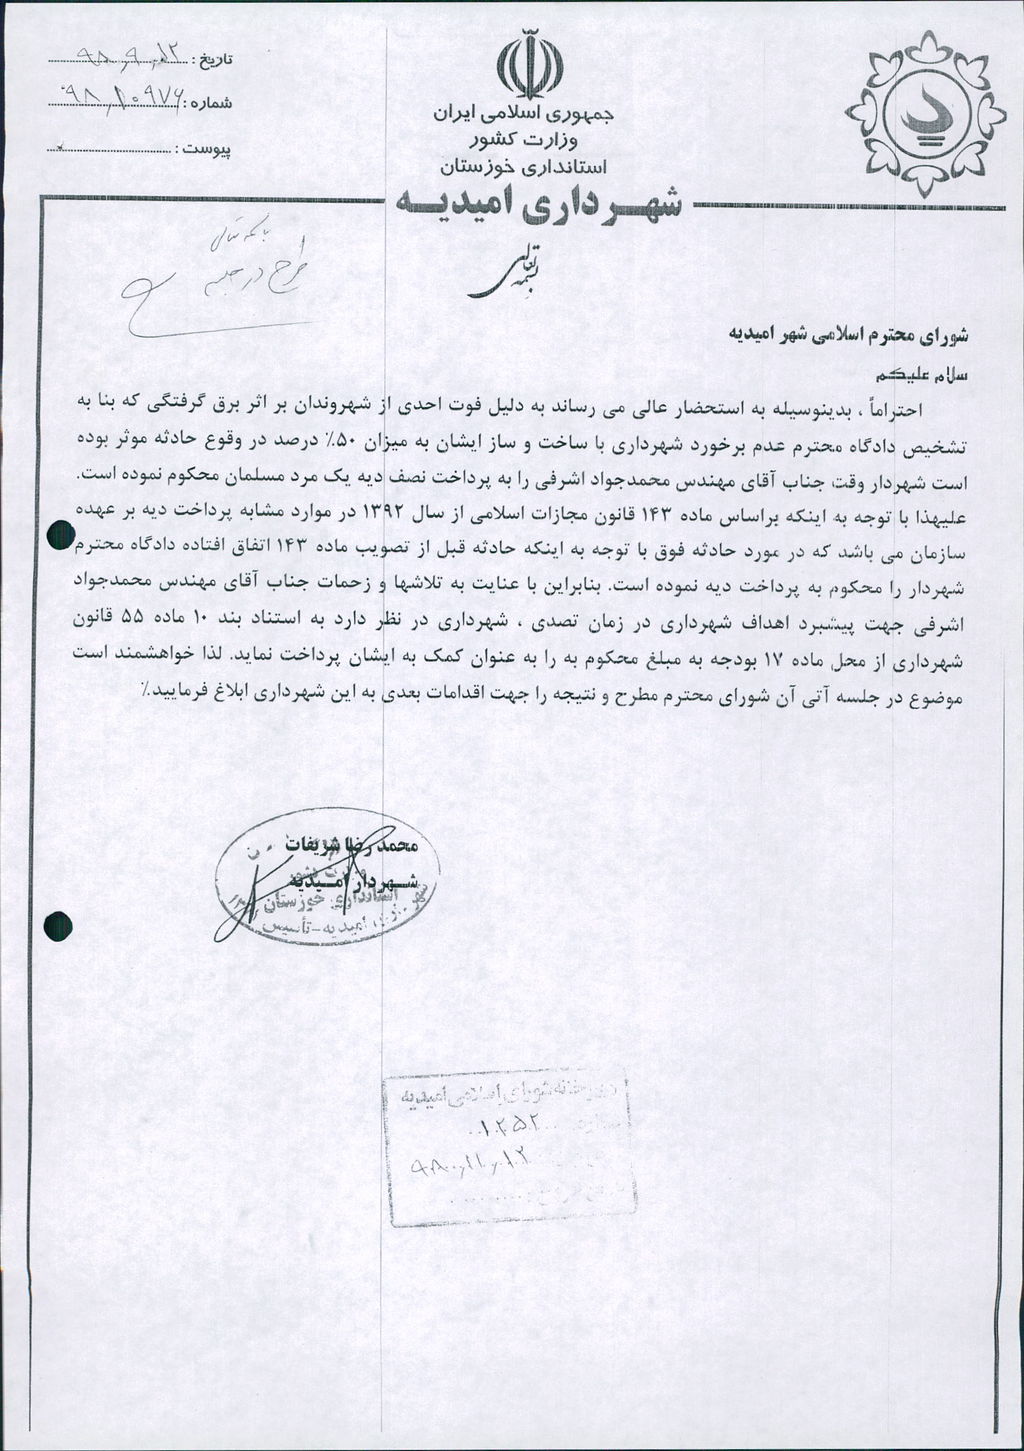 جمهوری اسلامی ایران
وزارت کشور
استانداری خوزستان
شهرداری امیدیه
تاریخ :
شماره : ۹۸/۱۰۹۷۶
پیوست :
بسمه تعالی
باسمه تعالی
طرح در جلسه
شورای محترم اسلامی شهر امیدیه
سلام علیکم
احتراماً ، بدینوسیله به استحضار عالی می رساند به دلیل فوت احدی از شهروندان بر اثر برق گرفتگی که بنا به
تشخیص دادگاه محترم عدم برخورد شهرداری با ساخت و ساز ایشان به میزان ۵۰٪ درصد در وقوع حادثه موثر بوده
است شهردار وقت جناب آقای مهندس محمدجواد اشرفی را به پرداخت نصف دیه یک مرد مسلمان محکوم نموده است.
علیهذا با توجه به اینکه براساس ماده ۱۴۳ قانون مجازات اسلامی از سال ۱۳۹۲ در موارد مشابه پرداخت دیه بر عهده
سازمان می باشد که در مورد حادثه فوق با توجه به اینکه حادثه قبل از تصویب ماده ۱۴۳ اتفاق افتاده دادگاه محترم
شهردار را محکوم به پرداخت دیه نموده است. بنابراین با عنایت به تلاشها و زحمات جناب آقای مهندس محمدجواد
اشرفی جهت پیشبرد اهداف شهرداری در زمان تصدی ، شهرداری در نظر دارد به استناد بند ۱۰ ماده ۵۵ قانون
شهرداری از محل ماده ۱۷ بودجه به مبلغ محکوم به را به عنوان کمک به ایشان پرداخت نماید. لذا خواهشمند است
موضوع در جلسه آتی آن شورای محترم مطرح و نتیجه را جهت اقدامات بعدی به این شهرداری ابلاغ فرمایید.٪
محمد رضا شریفات
شهردار امیدیه
استانداری خوزستان
امیدیه-تأسیس
دبیرخانه شورای اسلامی امیدیه
۱۲۵۲
۹۸/۱۱/۱۲